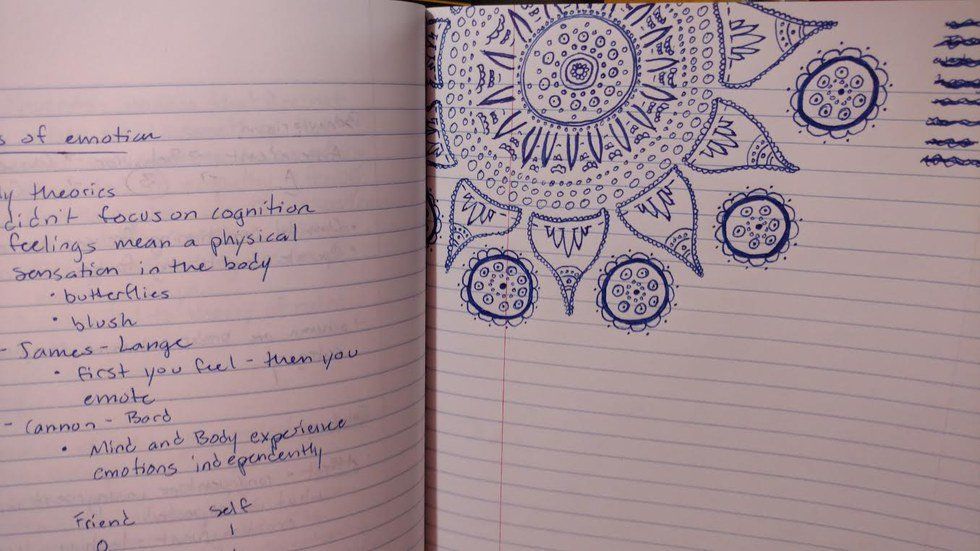 s of emotion
y theories
didn't focus on cognition
feelings mean a physical
sensation in the body
• butterflies
• blush
- James - Lange
• first you feel - then you
emote
- Cannon - Bard
• Mind and Body experience
emotions independently
Friend Self
0 1